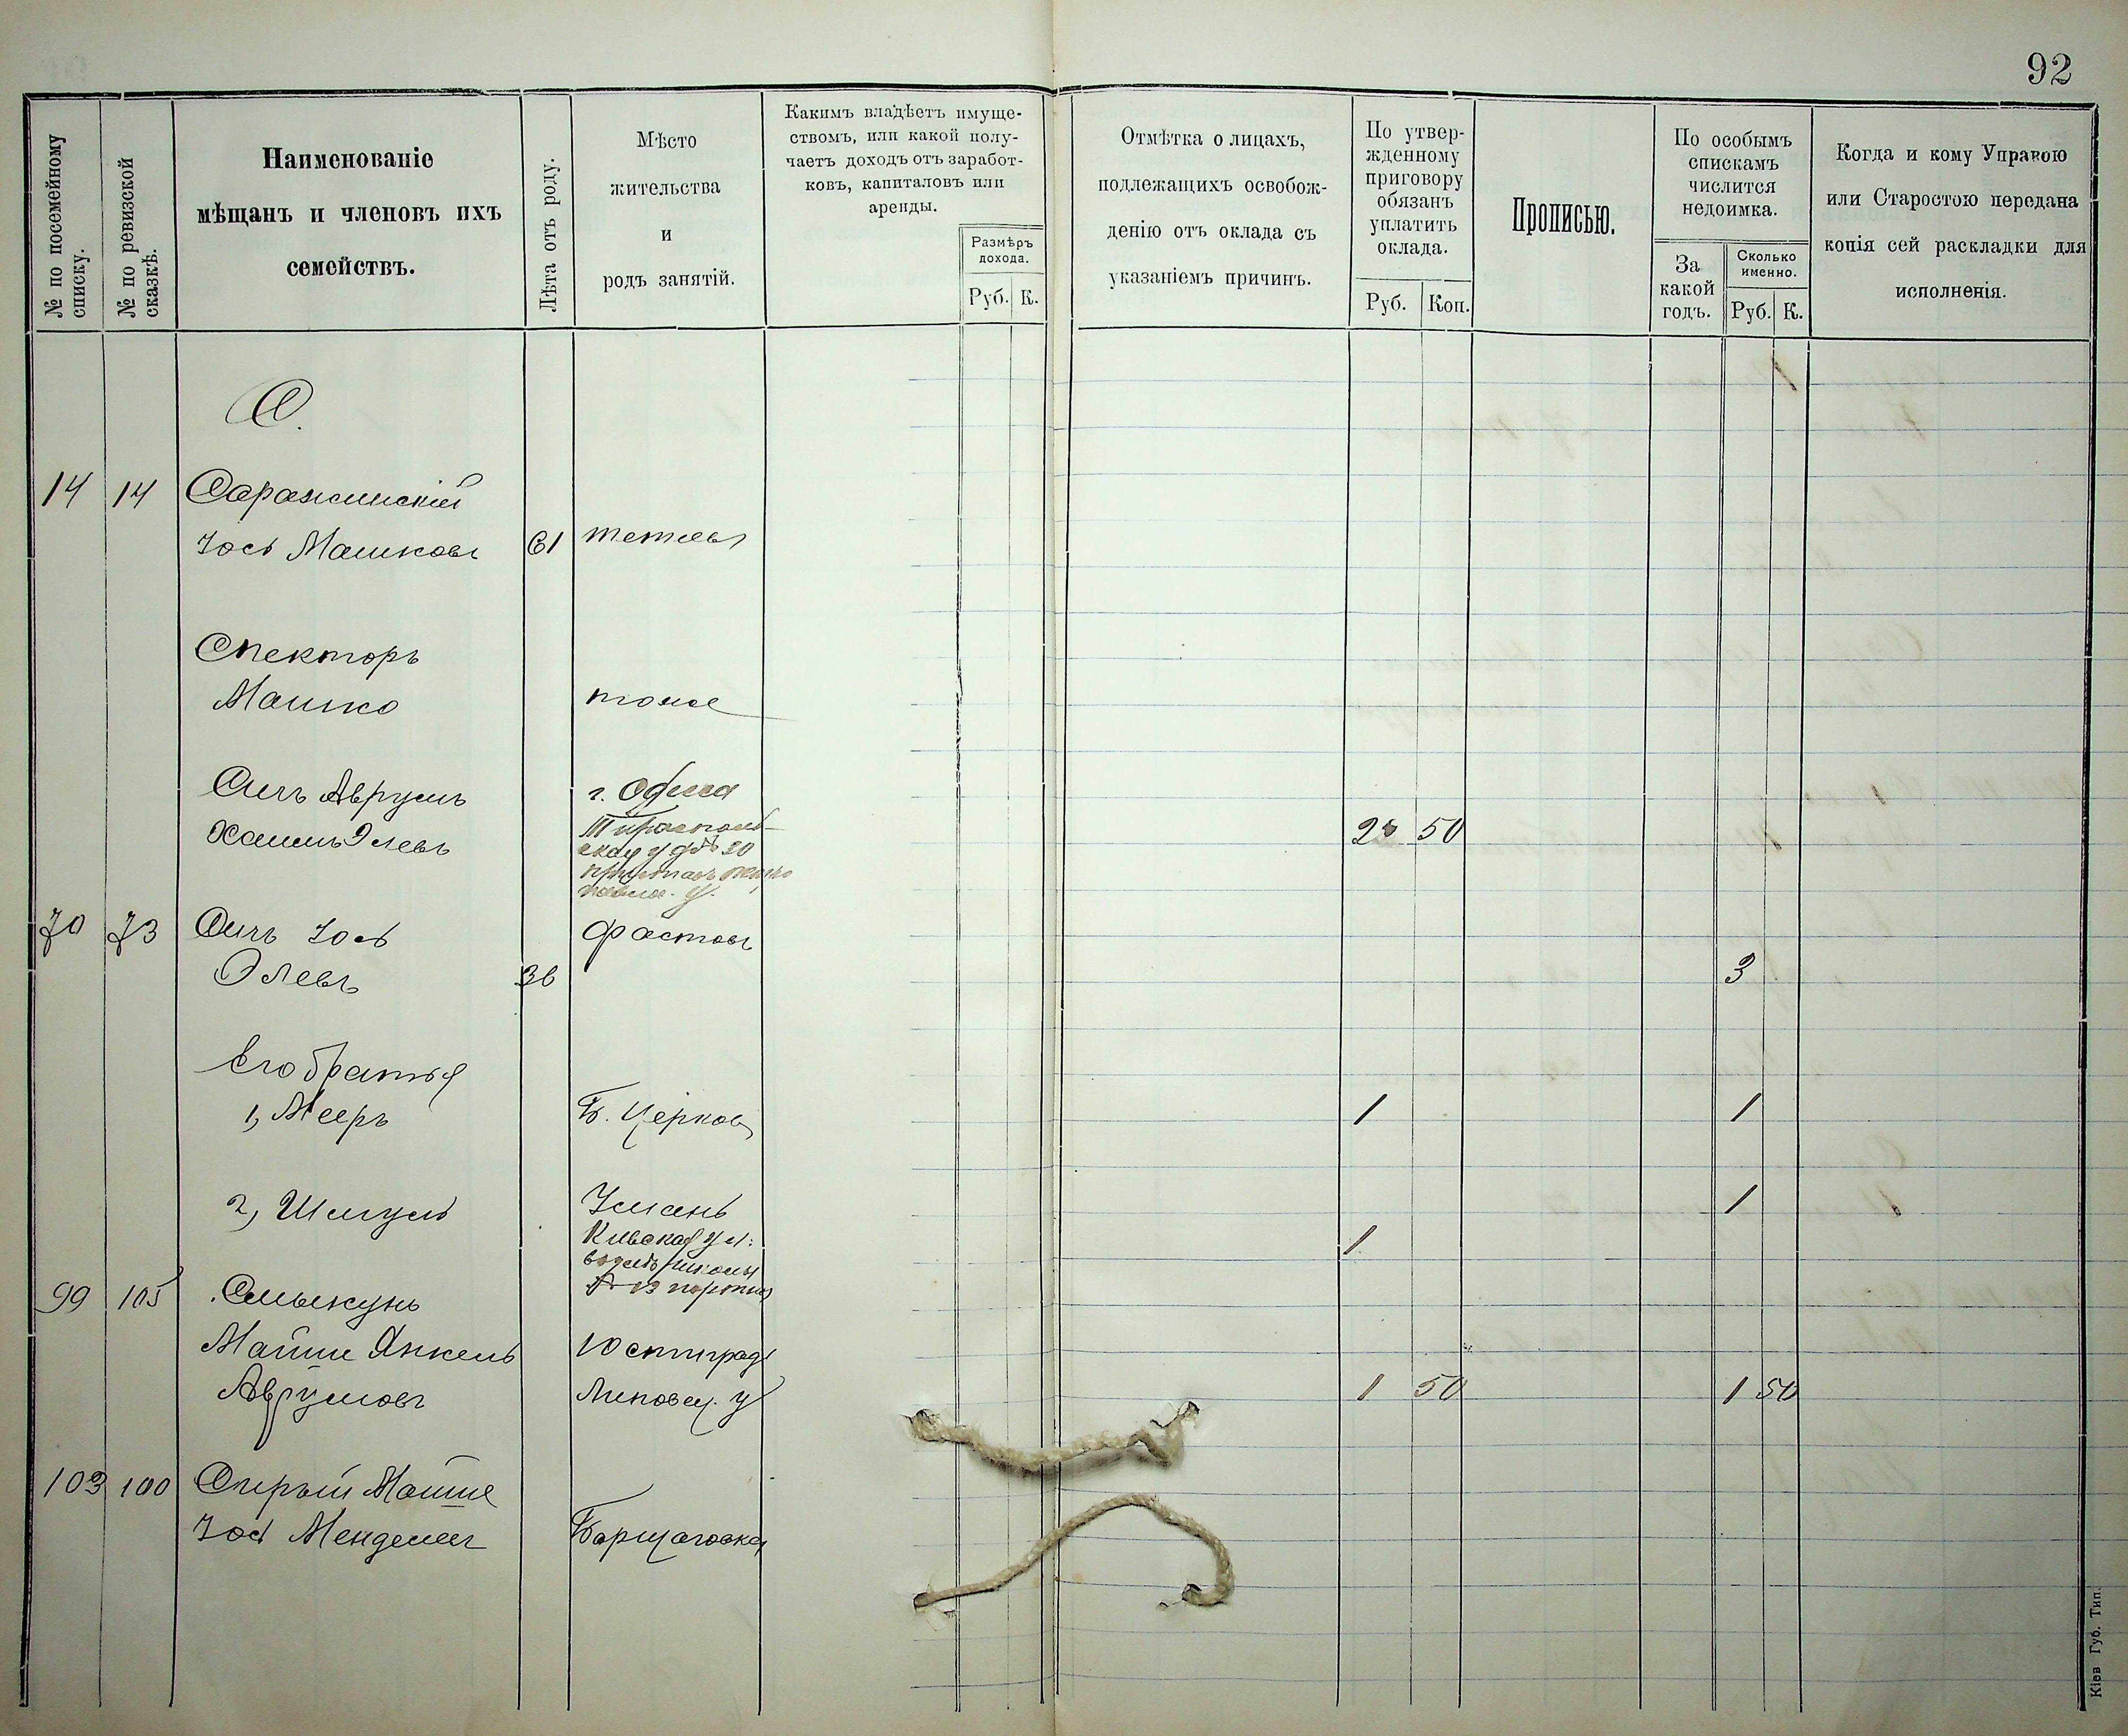 92
№ по посемейному списку.
№ по ревизской сказкѣ.
Наименованіе
мѣщанъ и членовъ ихъ
семействъ.
Лѣта отъ роду.
Мѣсто
жительства
и
родъ занятій.
Какимъ владѣетъ имуще-
ствомъ, или какой полу-
чаетъ доходъ отъ заработ-
ковъ, капиталовъ или
аренды.
Размѣръ
дохода.
Руб. К.
Отмѣтка о лицахъ,
подлежащихъ освобож-
денію отъ оклада съ
указаніемъ причинъ.
По утвер-
жденному
приговору
обязанъ
уплатить
оклада.
Руб. Коп.
Прописью.
По особымъ
спискамъ
числится
недоимка.
За
какой
годъ.
Сколько
именно.
Руб. К.
Когда и кому Управою
или Старостою передана
копія сей раскладки для
исполненія.
С.
14 14 Саражинскій
Іось Машковъ 61 Тетіевъ
Спекторъ
Машко тоже
Сичъ Аврумъ г. Одесса
Хаимъ Элевъ Тирасполь-
ская 20 2 50
70 73 Сичъ Іось Фастовъ
Элевъ 36 3
Его братья
1, Мееръ Б. Церковь 1 1
2, Шмуль Умань 1
Кіевская ул: 1
99 105 Смыкунъ
Мошке Янкель Юстинград
Аврумовъ Липовец. у 1 50 1 50
103 100 Спирый Мошке
Іось Менделевъ Борщаговка
Кіев Губ. Тип.